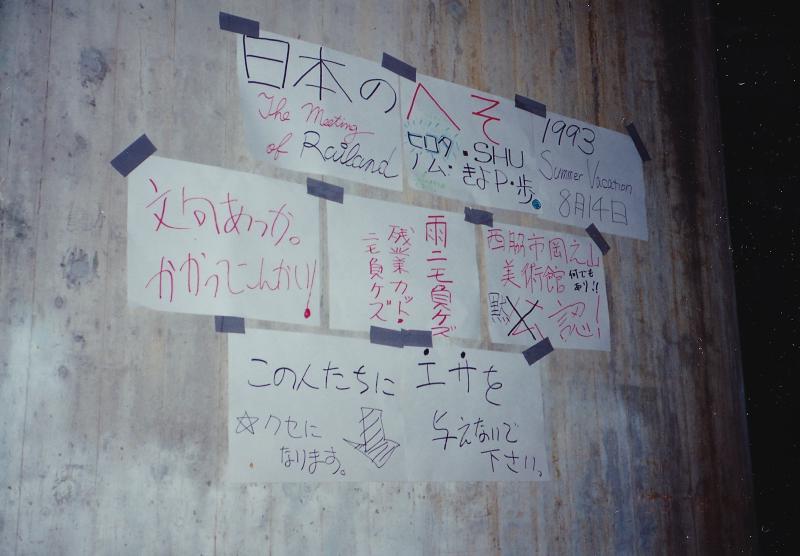 日本のへそ
The Meeting
of Railand
ヒロタ・SHU
ノム・きよP・歩。
1993
Summer Vacation
8月14日
文句あっか。
かかってこんかい!
雨ニモ負ケズ
残業カット・
ニモ負ケズ
西脇市岡之山
美術館何でもあり!!
黙認!
この人たちにエサを
与えないで
下さい。
☆クセに
なります。